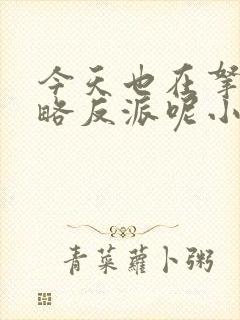 今天也在拏
略反派呢小
青菜蘿卜粥